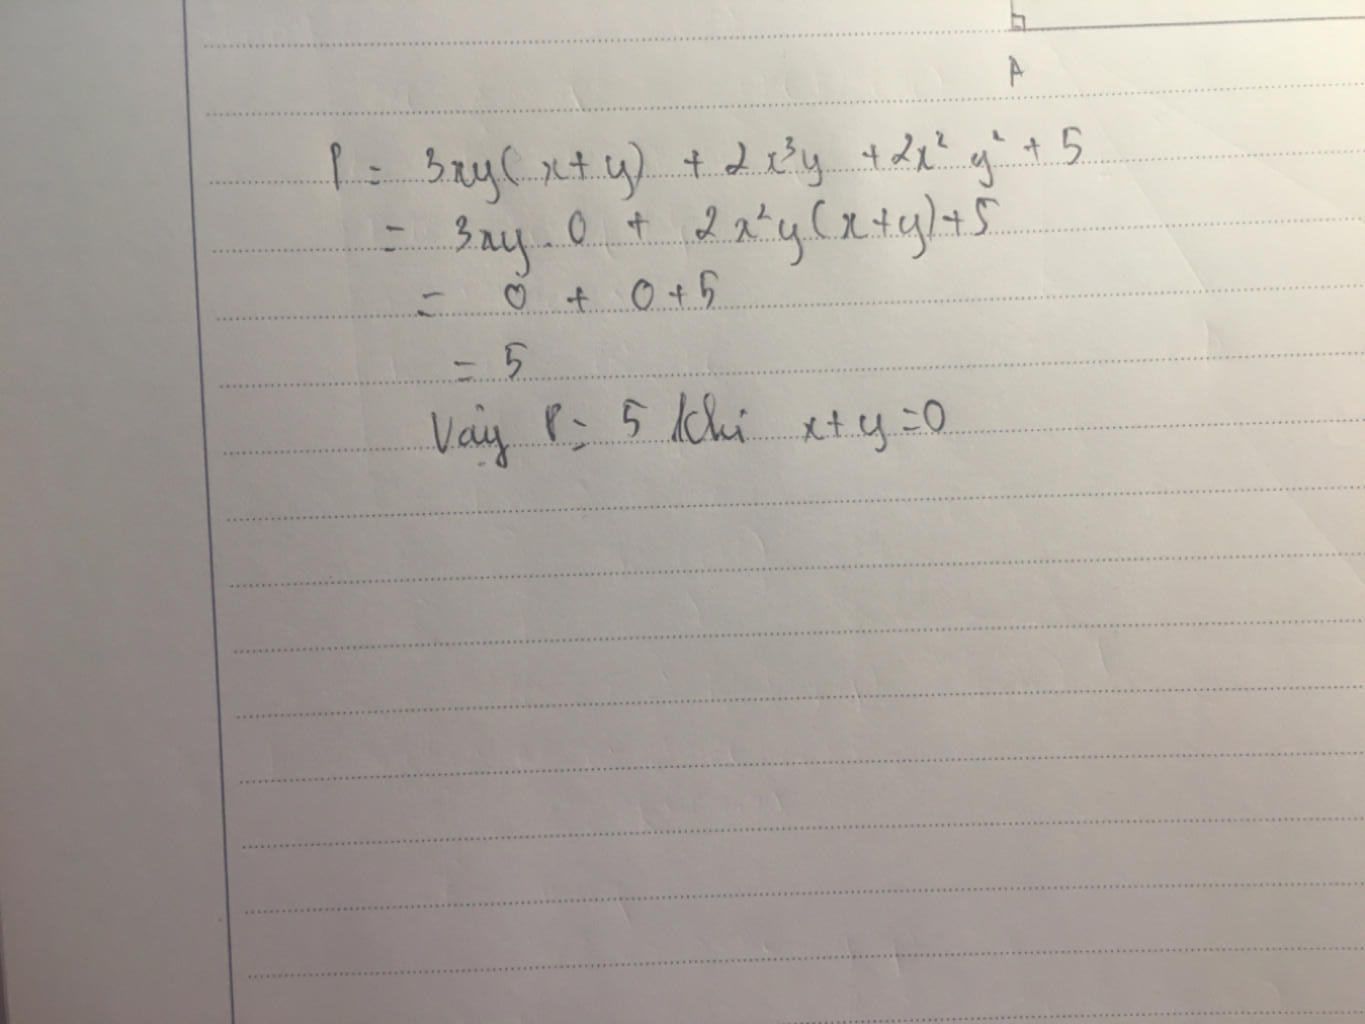 A
P = 3xy(x+y) + 2x³y + 2x² y² + 5
= 3xy . 0 + 2x²y(x+y)+5
= 0 + 0+5
= 5
Vậy P = 5 khi x+y=0